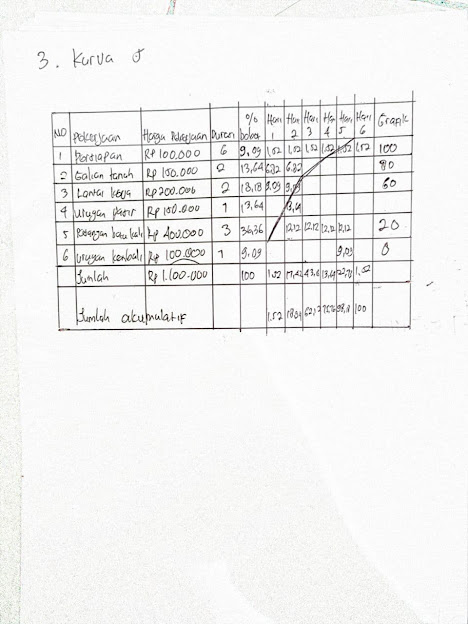 3. Kurva S
NO Pekerjaan Harga Pekerjaan Durasi % bobot Hari 1 Hari 2 Hari 3 Hari 4 Hari 5 Hari 6 Grafik
1 Persiapan Rp 100.000 6 9,09 1,52 1,52 1,52 1,52 1,52 1,52 100
2 Galian tanah Rp 150.000 2 13,64 6,82 6,82 80
3 Lantai kerja Rp 200.000 2 18,18 9,09 9,09 60
4 Urugan pasir Rp 150.000 1 13,64 13,64
5 Rp 400.000 3 36,36 12,12 12,12 12,12 12,12 20
6 Urugan kembali Rp 100.000 1 9,09 9,09 0
Jumlah Rp 1.100.000 100 1,52
Jumlah akumulatif 1.52 100